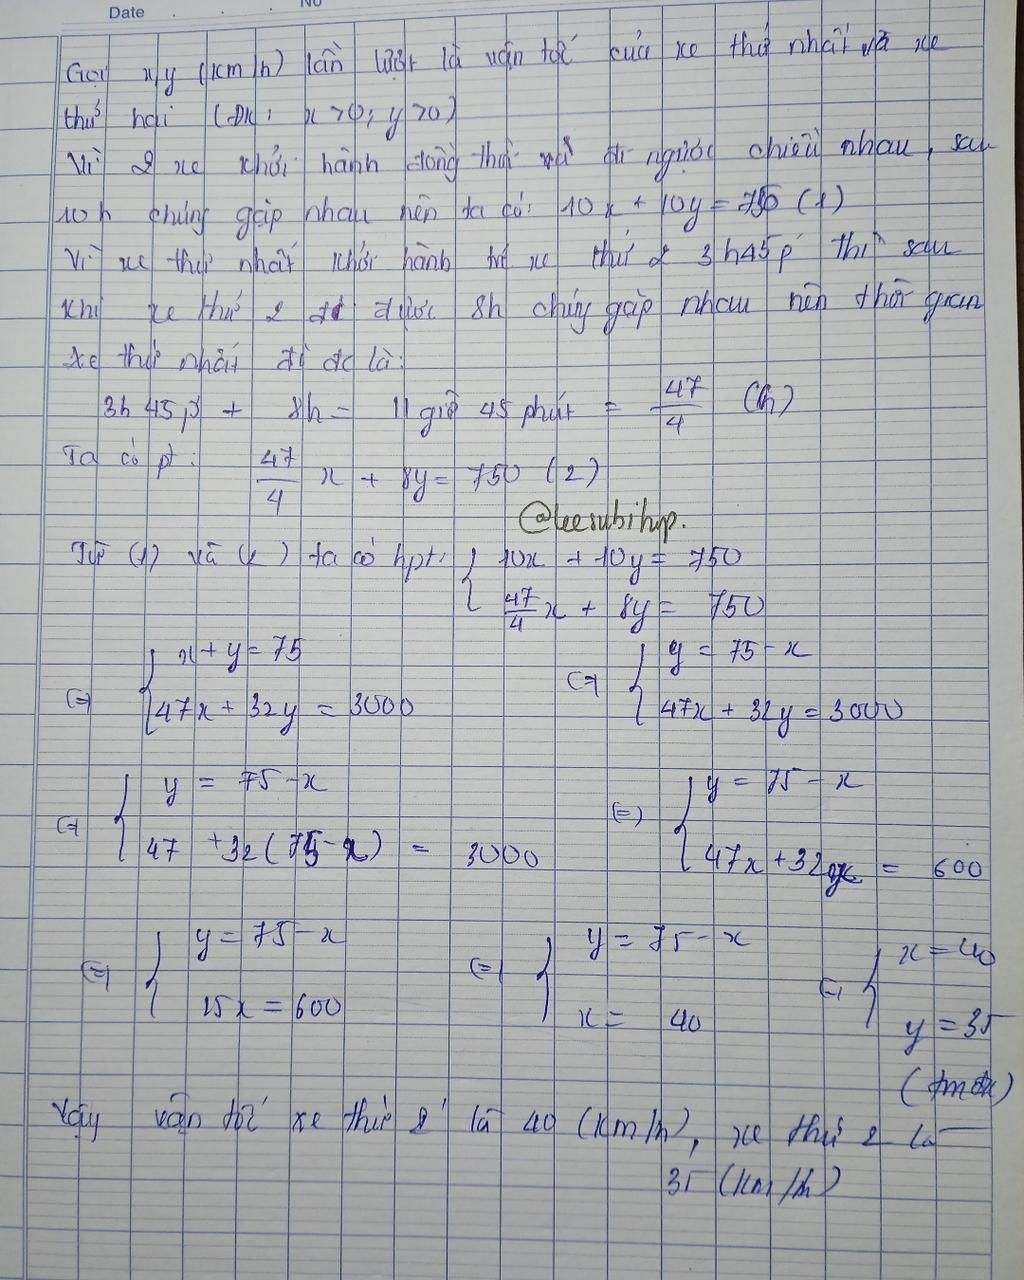 Date No
Gọi x, y (km/h) lần lượt là vận tốc của xe thứ nhất và xe
thứ hai (ĐK: x > 0; y > 0)
Vì 2 xe khởi hành đồng thời và đi ngược chiều nhau, sau
10h chúng gặp nhau nên ta có: 10x + 10y = 750 (1)
Vì xe thứ nhất khởi hành trc xe thứ 2 3h45p thì sau
khi xe thứ 2 đi được 8h chúng gặp nhau nên thời gian
xe thứ nhất đi đc là:
3h 45p + 8h = 11 giờ 45 phút = 47/4 (h)
Ta có pt: 47/4 x + 8y = 750 (2)
@leesubihyp.
Từ (1) và (2) ta có hpt: { 10x + 10y = 750
47/4 x + 8y = 750
(=) { x + y = 75 (=) { y = 75 - x
47x + 32y = 3000 47x + 32y = 3000
(=) { y = 75 - x (=) { y = 75 - x
47 + 32(75 - x) = 3000 47x + 32x = 600
(=) { y = 75 - x (=) { y = 75 - x (=) { x = 40
15x = 600 x = 40 y = 35
(tmđk)
Vậy vận tốc xe thứ 2 là 40 (km/h), xe thứ 2 là
35 (km/h)